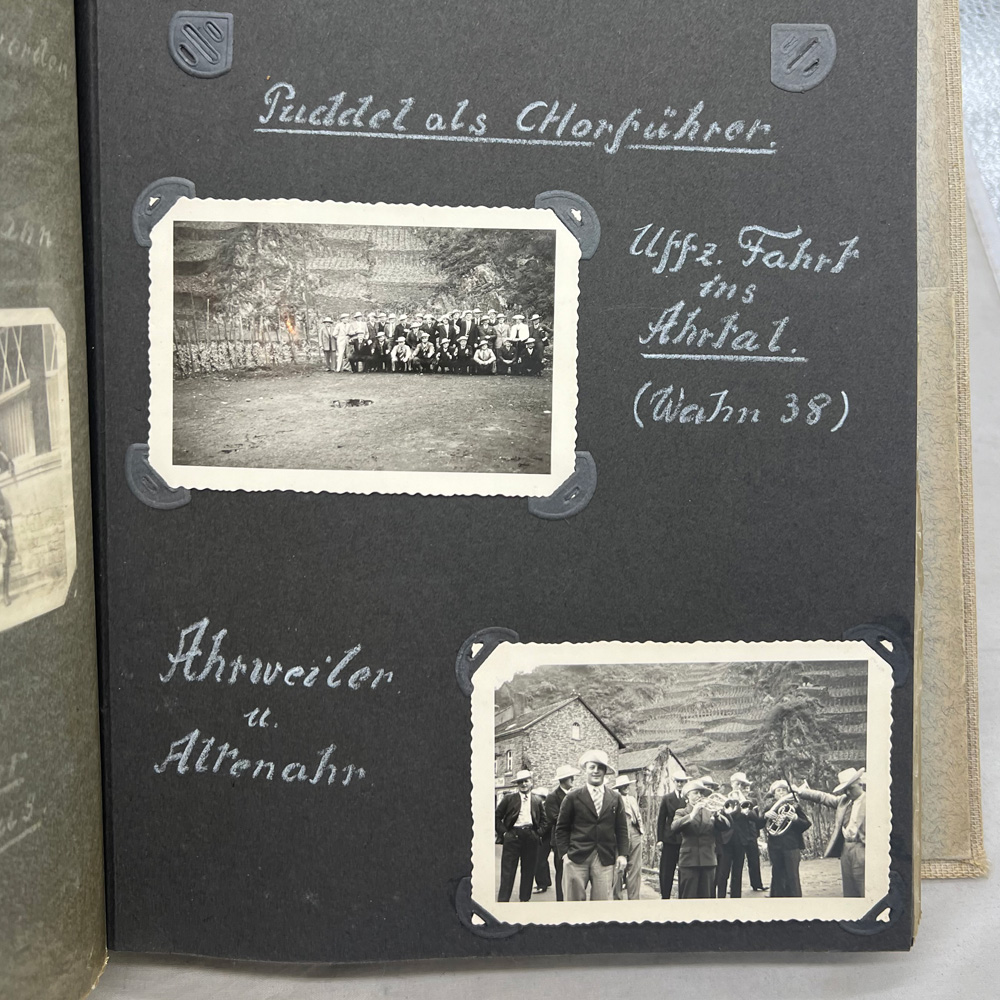 Puddel als CHorführer.
Uffz. Fahrt
ins
Ahrtal.
(Wahn 38)
Ahrweiler
u.
Altenahr